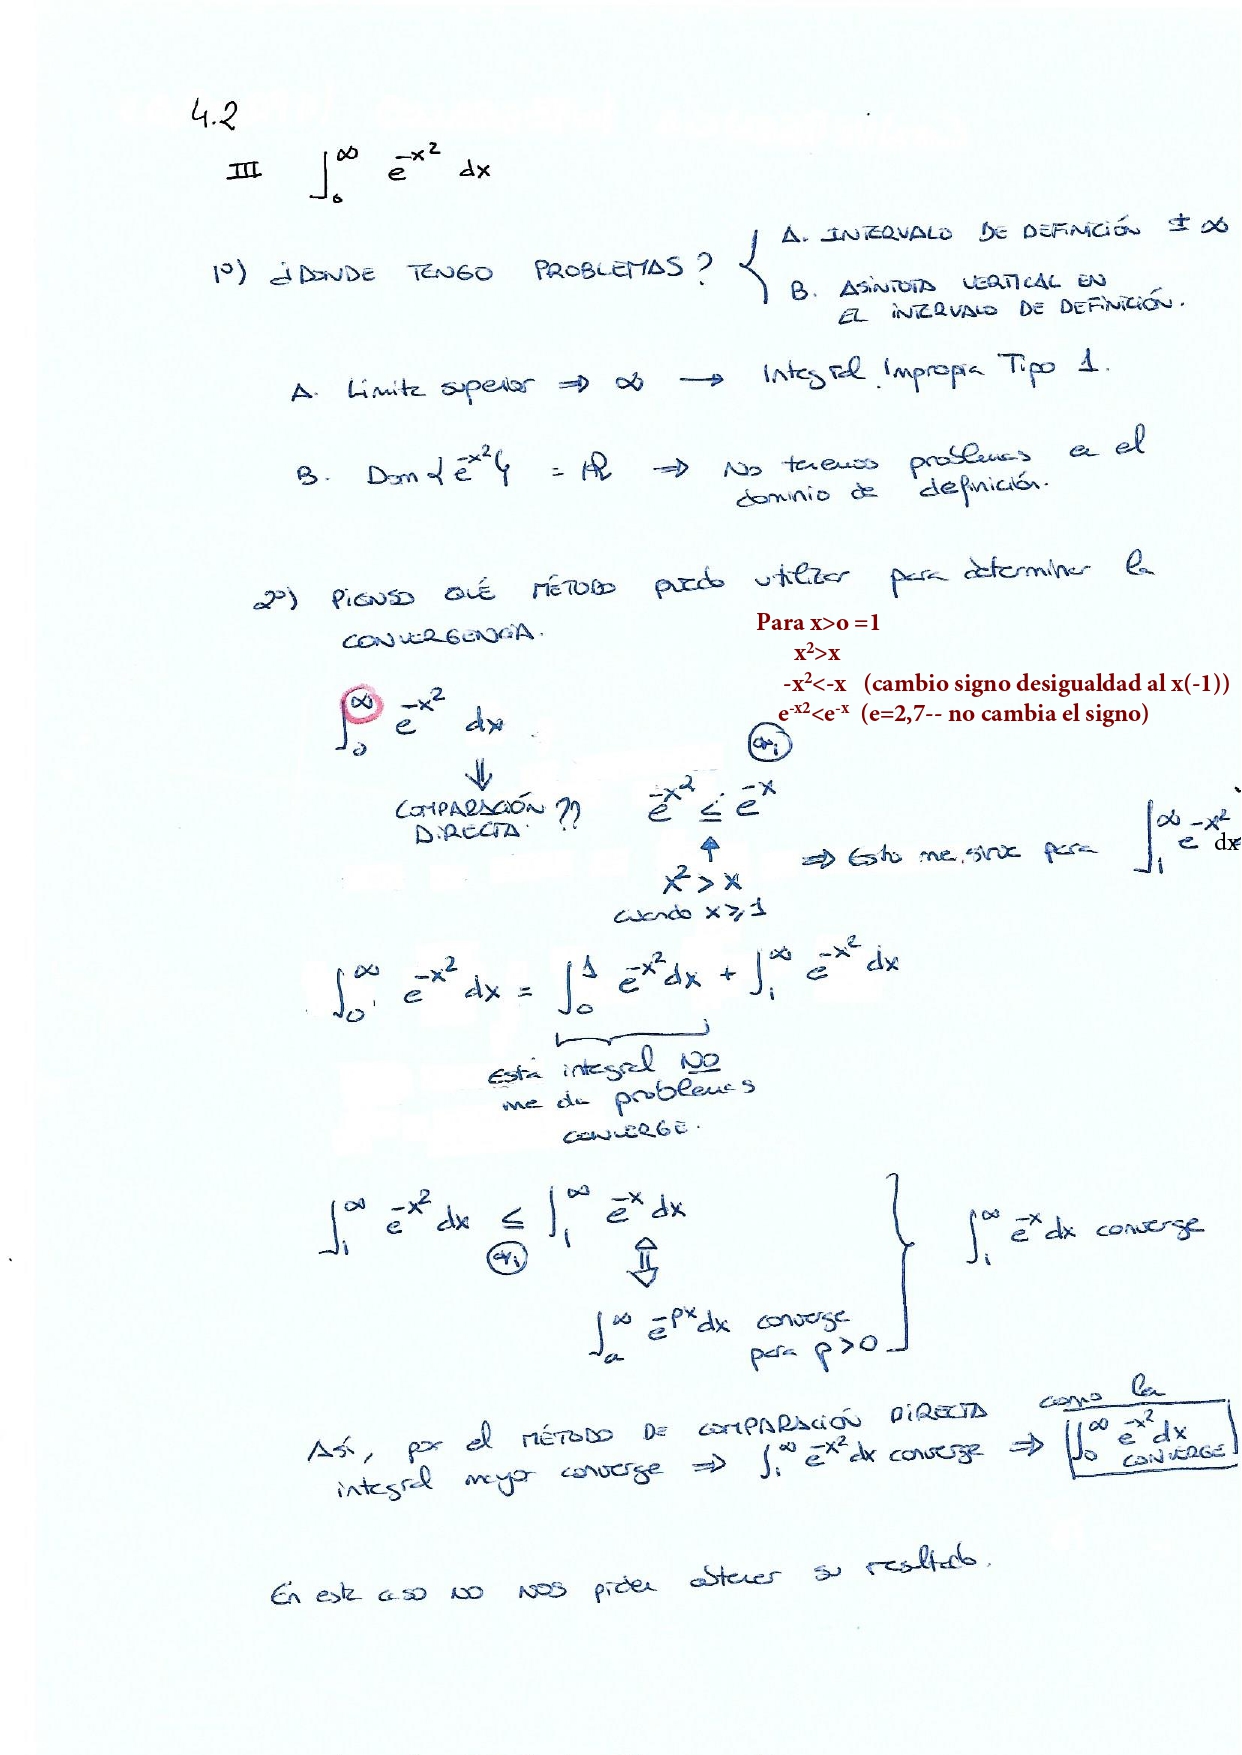 4.2
III ∫₀^∞ e^{-x²} dx
1º) ¿DONDE TENGO PROBLEMAS?
A. INTERVALO DE DEFINICIÓN ± ∞
B. ASÍNTOTA VERTICAL EN
EL INTERVALO DE DEFINICIÓN.
A. Límite superior ⇒ ∞ → Integral Impropia Tipo 1.
B. Dom {e^{-x²}} = ℝ ⇒ No tenemos problemas en el
dominio de definición.
2º) PIENSO QUÉ MÉTODO puedo utilizar para determinar la
CONVERGENCIA.
Para x>o =1
x²>x
-x²<-x (cambio signo desigualdad al x(-1))
e^{-x2}<e^{-x} (e=2,7-- no cambia el signo)
∫₀^∞ e^{-x²} dx
⇓
COMPARACIÓN ??
DIRECTA.
e^{-x²} ≤ e^{-x}
↑
x² > x
cuando x ≥ 1
⇒ Esto me sirve para ∫₁^∞ e^{-x²} dx
∫₀^∞ e^{-x²} dx = ∫₀^1 e^{-x²} dx + ∫₁^∞ e^{-x²} dx
Esta integral NO
me da problemas
CONVERGE.
∫₁^∞ e^{-x²} dx ≤ ∫₁^∞ e^{-x} dx
⇕
∫ₐ^∞ e^{-px} dx converge
para p > 0
∫₁^∞ e^{-x} dx converge
Así, por el MÉTODO DE COMPARACIÓN DIRECTA como la
integral mayor converge ⇒ ∫₁^∞ e^{-x²} dx converge ⇒ ∫₀^∞ e^{-x²} dx
CONVERGE
En este caso NO NOS piden obtener su resultado.